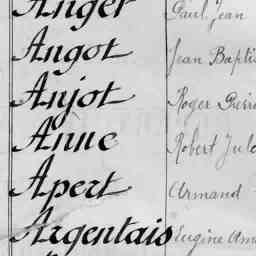 Anger Paul Jean
Angot Jean Baptis
Anjot Roger Pierre
Anne Robert Jule
Apert Armand
Argentais Eugène Am